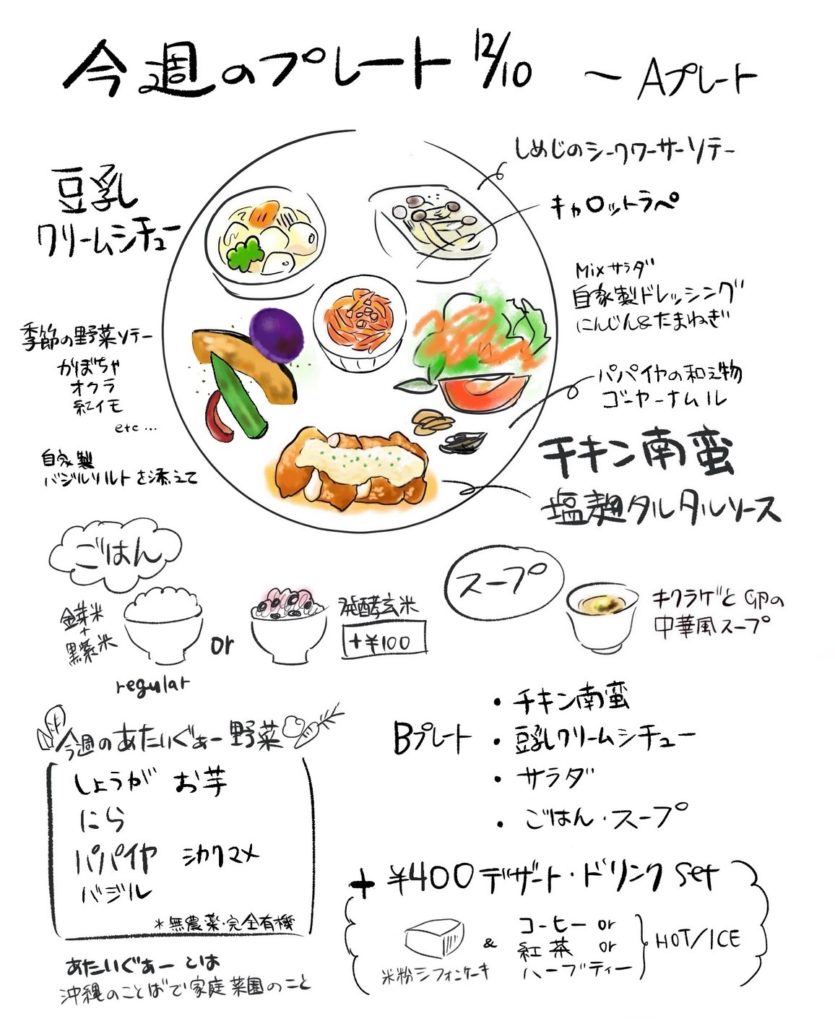 今週のプレート 12/10 ～Aプレート
しめじのシークワーサーソテー
キャロットラペ
豆乳
クリームシチュー
Mixサラダ
自家製ドレッシング
にんじん&たまねぎ
季節の野菜ソテー
かぼちゃ
オクラ
紅イモ
etc...
パパイヤの和え物
ゴーヤーナムル
自家製
バジルソルトを添えて
チキン南蛮
塩麹タルタルソース
ごはん
金芽米
+
黒紫米
regular
or
発酵玄米
+¥100
スープ
キクラゲと
中華風スープ
今週のあたいぐぁー野菜
しょうが お芋
にら
パパイヤ シカクマメ
バジル
*無農薬・完全有機
あたいぐぁーとは
沖縄のことばで家庭菜園のこと
Bプレート
・チキン南蛮
・豆乳クリームシチュー
・サラダ
・ごはん・スープ
+ ¥400 デザート・ドリンク set
米粉シフォンケーキ
&
コーヒー or
紅茶 or
ハーブティー
HOT/ICE